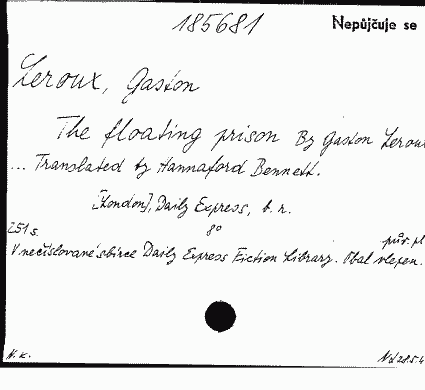 185681
Nepůjčuje se
Leroux, Gaston
The floating prison By Gaston Leroux
... Translated by Hannaford Bennett.
[London], Daily Express, b. r.
251 s. 8° pův. pl
V nečíslované sbírce Daily Express Fiction Library. Obal vlepen.
N. k.